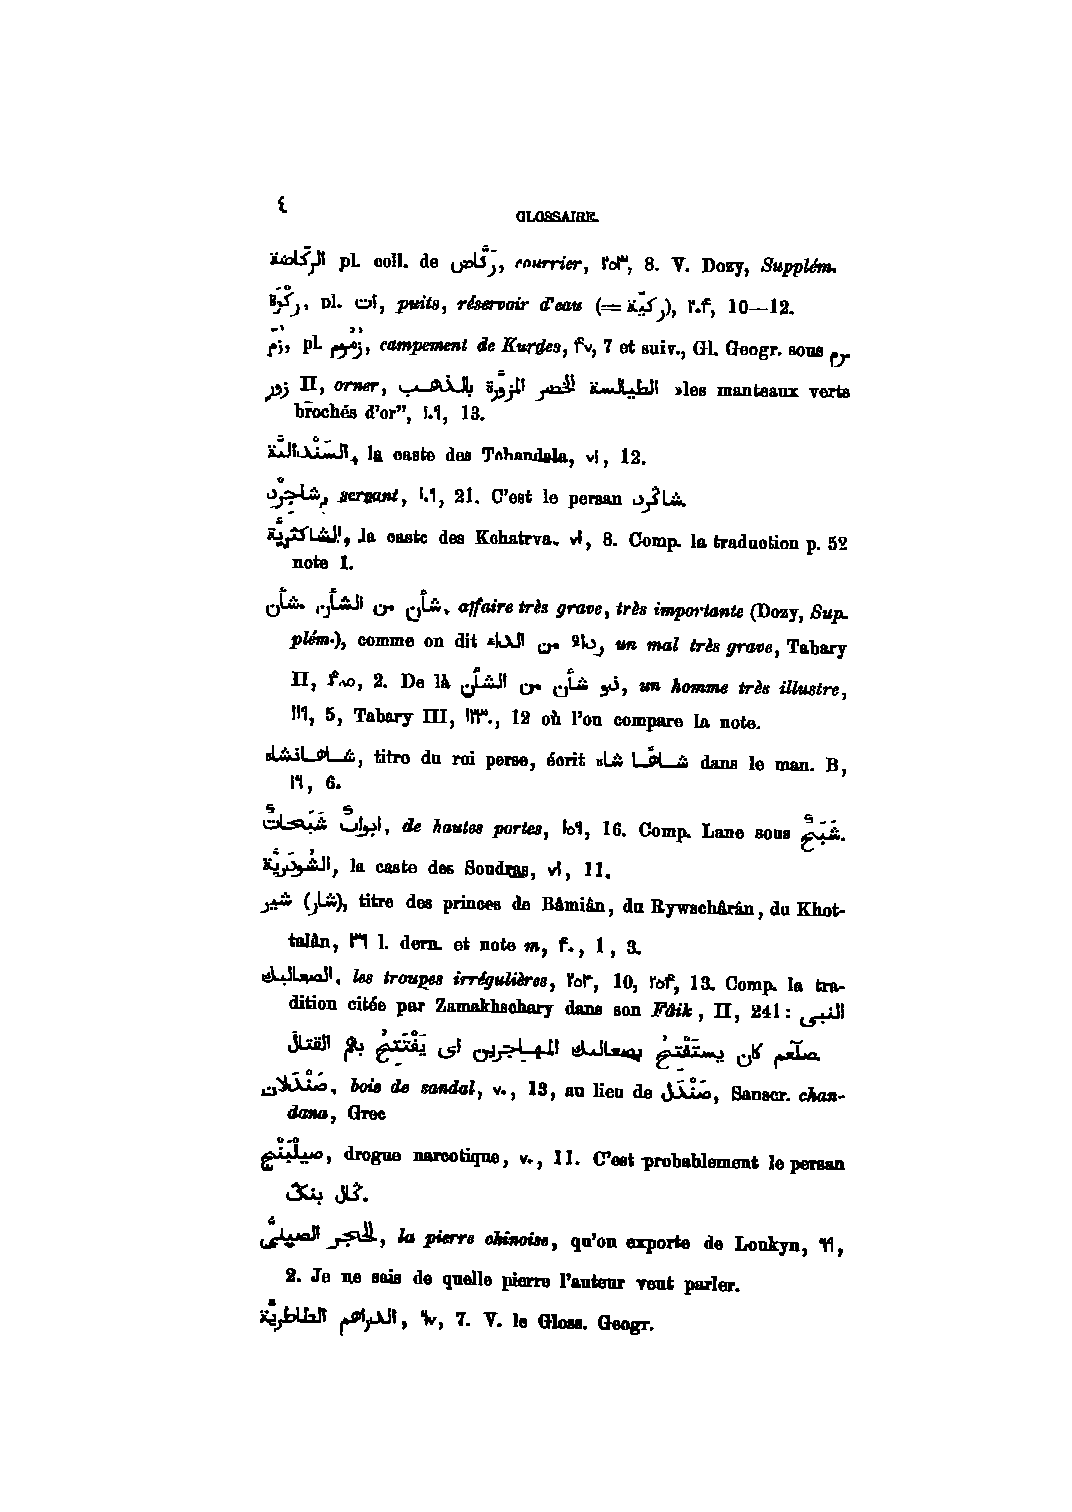 ٤
GLOSSAIRE.
الرَّكّاضة pl. coll. de رَكَّاض, courrier, ٢٥٣, 8. V. Dozy, Supplém.
رَكْوَة, pl. ات, puits, réservoir d'eau (= رَكِيَّة), ٢٠٤, 10—12.
زَمّ, pl. زُمُوم, campement de Kurdes, ٤٧, 7 et suiv., Gl. Geogr. sous رم
زور II, orner, الطيالسة الخضر المزوّرة بالذهب »les manteaux verts
brochés d'or", ١٠٩, 13.
السَنْدَاليَّة, la caste des Tchandala, ٧١, 12.
شاجِرْد, servant, ١٠٩, 21. C'est le persan شاكرد.
الشاكثريَّة, la caste des Kchatrya, ٧١, 8. Comp. la traduction p. 52
note 1.
شأن من الشأن, شأن, affaire très grave, très importante (Dozy, Sup-
plém.), comme on dit داء من الداء, un mal très grave, Tabary
II, 2. De là ذو شأن من الشأن, un homme très illustre,
5, Tabary III, 12 où l'on compare la note.
شاهانشاه, titre du roi perse, écrit شاهًا شاه dans le man. B,
١٦, 6.
ابوابٌ شَبَحاتٌ, de hautes portes, ١٥٩, 16. Comp. Lane sous شَبَحٌ.
الشُودَرِيَّة, la caste des Soudras, ٧١, 11.
شير (شار), titre des princes de Bâmiân, du Rywschârân, du Khot-
talân, ٣٩ l. dern. et note m, ٤٠, 1, 3.
الصعاليك, les troupes irrégulières, ٢٥٣, 10, ٢٥٤, 13. Comp. la tra-
dition citée par Zamakhschary dans son Fâïk, II, 241: النبى
صلّعم كان يستَفْتِحُ بصعاليك المهاجرين اى يَفْتَتِحُ بهم القتال
صَنْدَلان, bois de sandal, ٧٠, 13, au lieu de صَنْدَل, Sanscr. chan-
dana, Grec
صيلْبَنْج, drogue narcotique, ٧٠, 11. C'est probablement le persan
بنك.
الحجر الصينىّ, la pierre chinoise, qu'on exporte de Loukyn, ٦٩,
2. Je ne sais de quelle pierre l'auteur veut parler.
الدراهم الطاطريَّة, ٦٧, 7. V. le Gloss. Geogr.